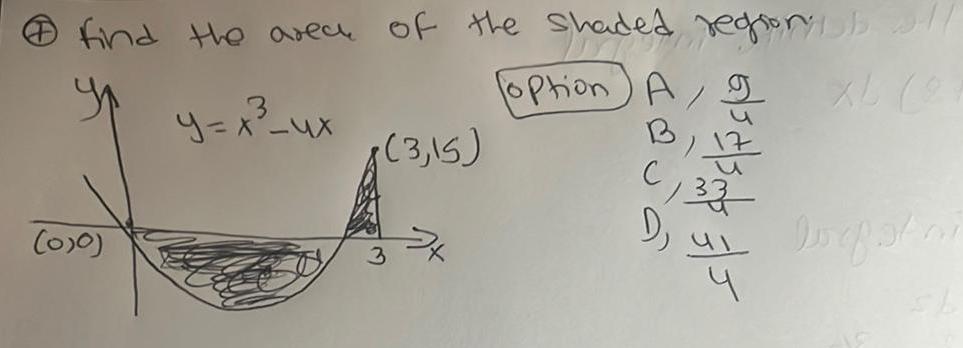 ⑦ find the area of the shaded region.
y
y = x³ - 4x
(3,15)
(0,0)
3
x
option
A, 9/4
B, 17/4
C, 33/4
D, 41/4